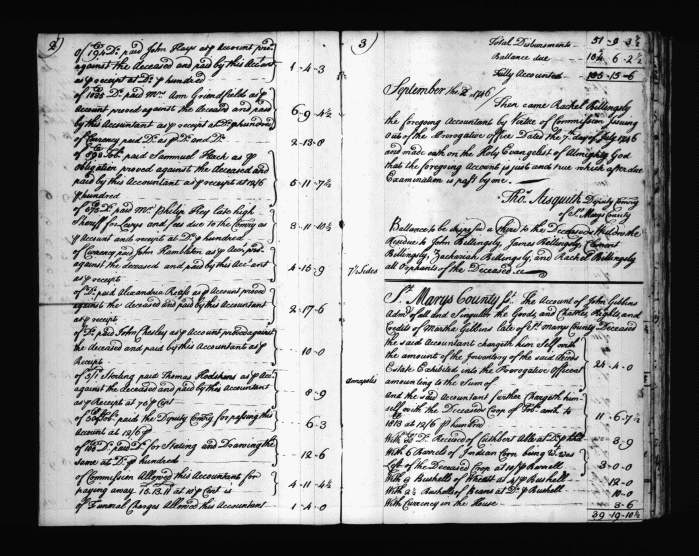 2
of 194 Do. paid John Hays as p Account prov.
against the Deceased and paid by this Account
as p receipt at Do. p hundred
1-4-3
of 1085 Do. paid Mrs. Ann Greenfield as p
Account proved against the Deceased and paid
by this Accountant as p receipt at Do. p hundred
6-9-4½
of Currency paid Do. as p Do. and Do.
2-13-0
of 890 Tob. paid Sammuel Hach as p
obligation proved against the Deceased and
paid by this Accountant as p receipt at 12/6
p hundred
5-11-7½
of 570 Do. paid Mr. Philip Key late high
Sheriff for Levys and fees due to the County as
p Account and receipt at Do. p hundred
3-11-10½
of Currency paid John Hambleton as p Acco. prov.
against the deceased and paid by this Accountant
as p receipt
4-16-9
of Do. paid Alexandria as p Account proved
against the Deceased and paid by this Accountant
as p receipt
2-17-6
of Do. paid John Chesley as p Account proved against
the deceased and paid by this Accountant as p
Receipt
10-0
of 5/1 Sterling paid Thomas Hodshens as p Acc.
against the deceased and paid by this Accountant
as p Receipt at 70 p Cent
8-9
of 50 Tob. paid the Deputy Comry for passing this
Account at 12/6 p
6-3
of 100 Do. paid Do. for Stating and Drawing the
same at Do. p hundred
12-6
of Commission Allowed this Accountant for
paying away 15.13.11 at 10 p Cent is
4-11-4½
of Funeral Charges Allowed this Accountant
1-4-0
3
Total Disbursments 51-9-3½
Ballance due 104-6-2½
Fully Accounted 155-15-6
September the 2 1746
Then came Rachel Bellengsly
the foregoing Accountant by Vertue of Commission Issuing
out of the Prerogative Office Dated the 7th. day of July 1746
and made oath on the Holy Evangelist of Almighty God
that the foregoing Account is just and true which after due
Examination is past by one
Tho. Aisquith Deputy Comry
of St. Marys County
Ballance to be disposed a third to the Deceaseds Widdow the
Residue to John Bellengsly, James Bellengsly, Clement
Bellengsly, Zachariah Bellengsly, and Rachel Bellengsly
all Orphants of the Deceased
7½ Sides
St. Marys County Ss. The Account of John Gibbins
Admr. of all and Singullr the Goods and Chattles Rights and
Credits of Martha Gibbins late of St. marys County Deceased
the said Accountant chargeth him Self with
the amount of the Inventory of the said Deceds
Estate Exhibited into the Prerogative Office at
Annapolis
amounting to the Sum of
24-4-0
And the said Accountant further Chargeth him-
self with the Deceaseds Crop of Tob. amt. to
1813 at 12/6 p hundred
11-6-7½
With Do. Received of Cuthbert
8-9
With 6 Barrels of Indian Corn being
of the Deceased Crop at 10/ p Barrell
3-0-0
With 4 Bushells of Wheat at p Bushell
12-0
With 4½ Bushells of Beans at Do. p Bushell
10-0
With Currency in the House
3-6
39-19-10½